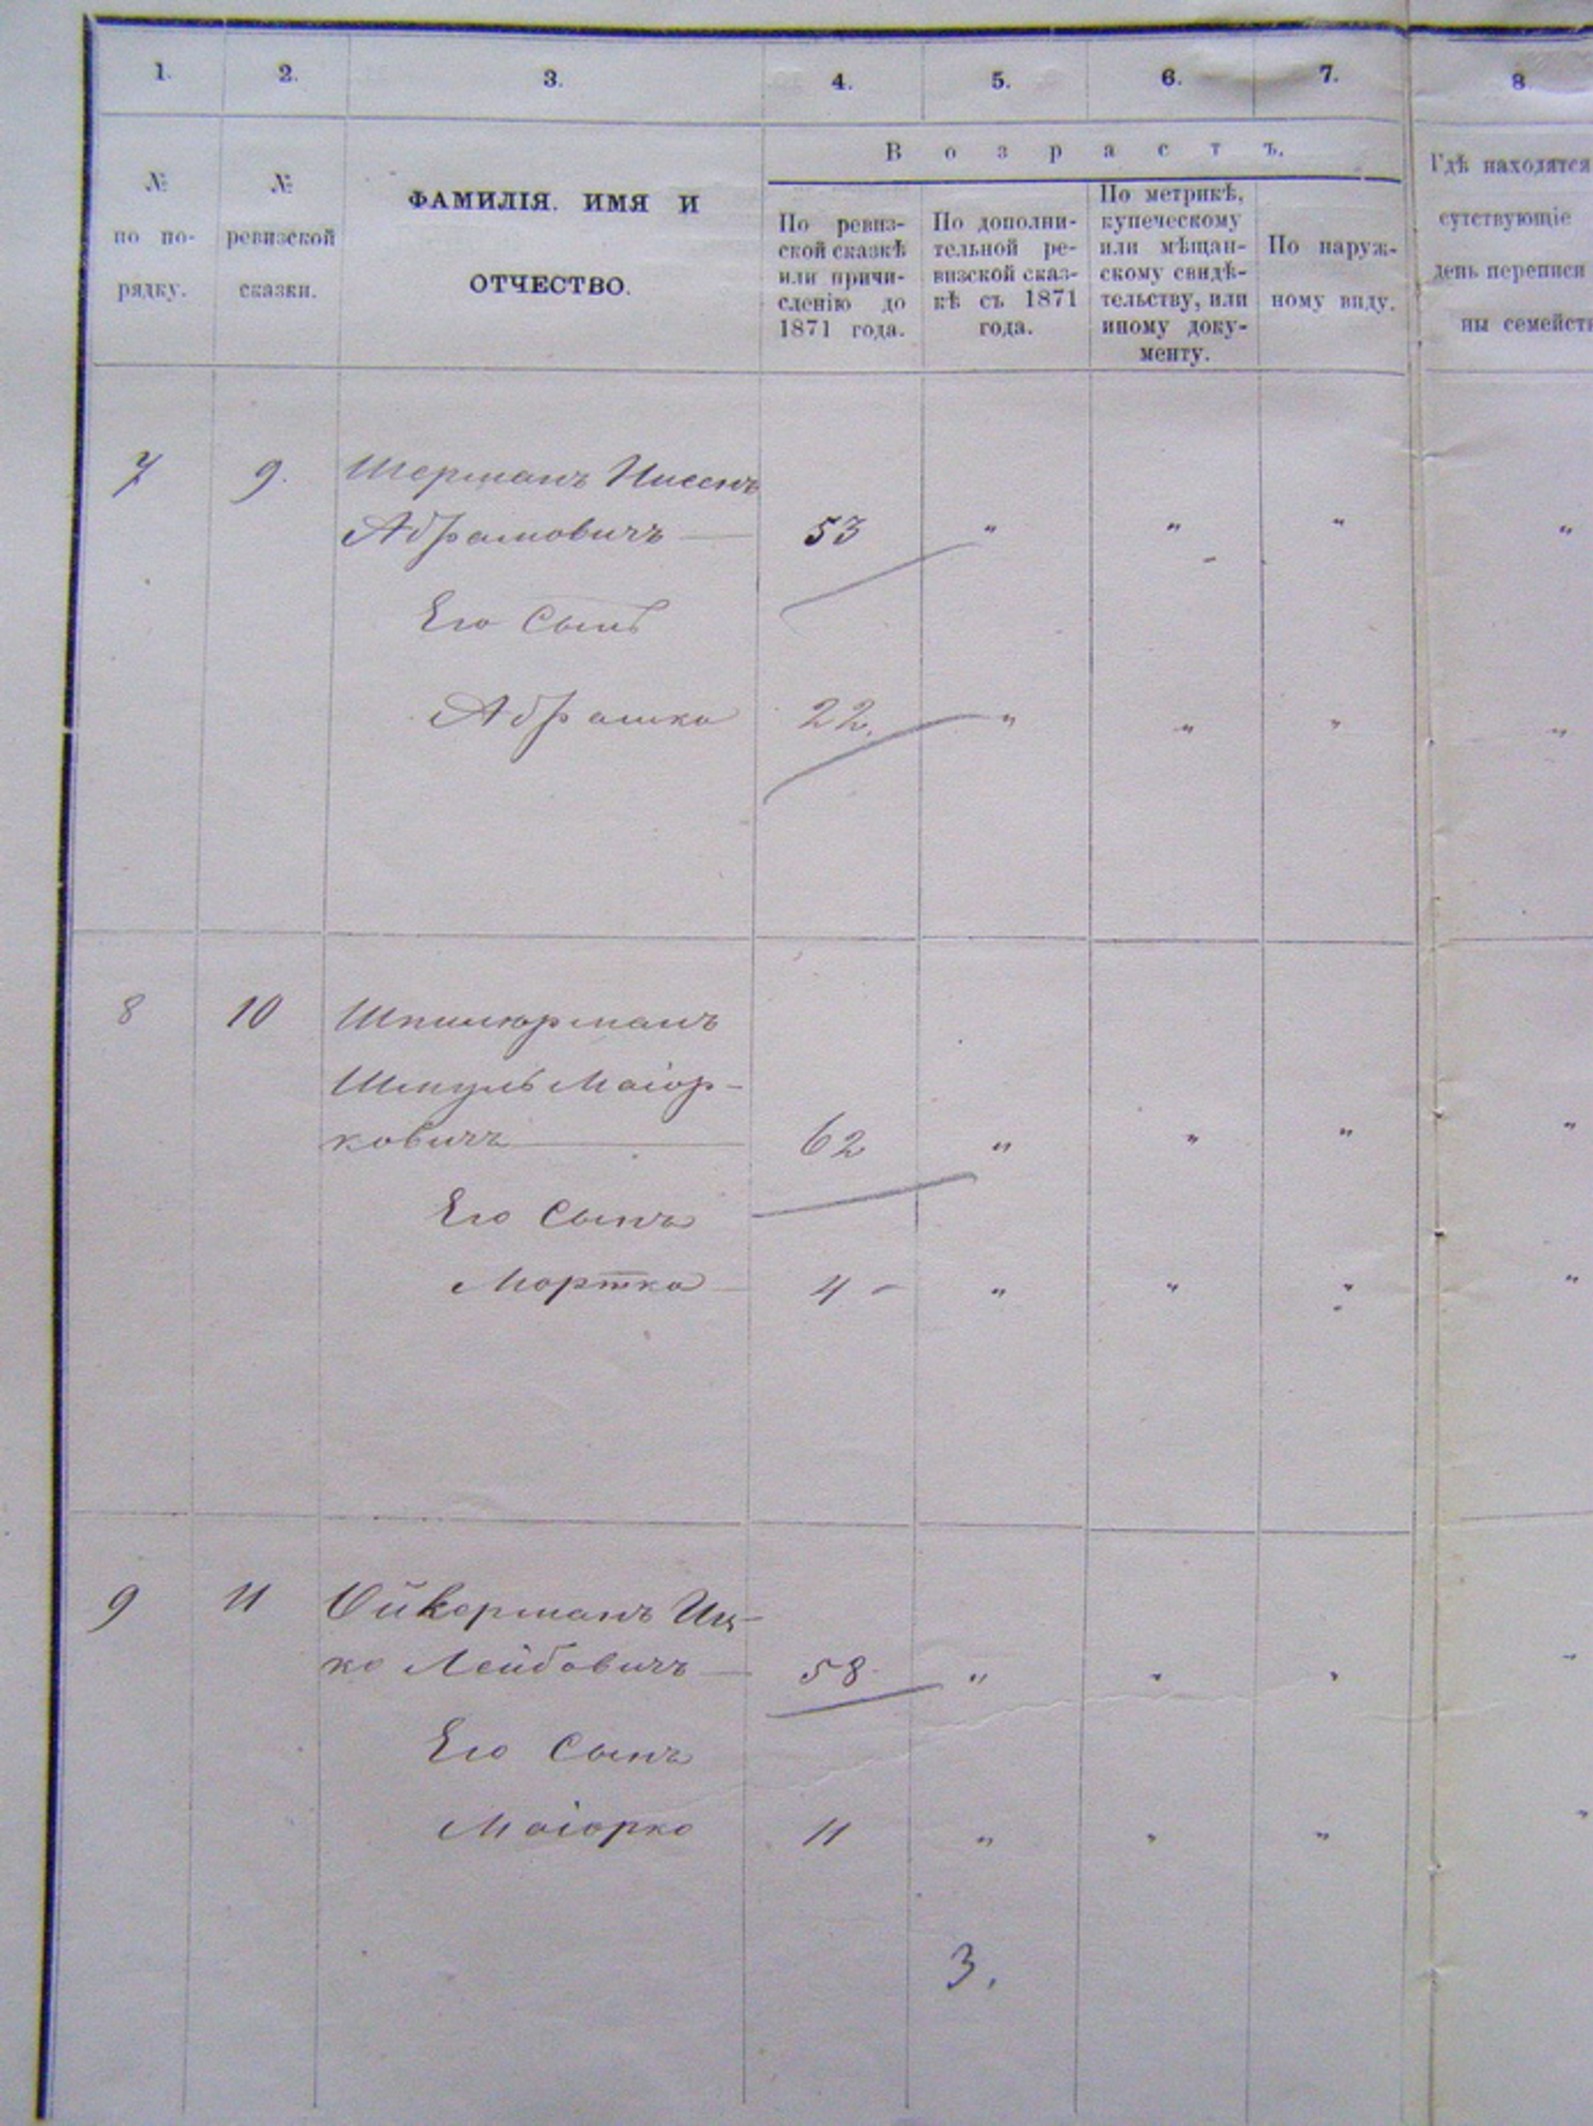 1. 2. 3. 4. 5. 6. 7. 8.
В о з р а с т ъ.
№ по по-рядку.
№ ревизской сказки.
ФАМИЛІЯ. ИМЯ И
ОТЧЕСТВО.
По ревиз-
ской сказкѣ
или причи-
сленію до
1871 года.
По дополни-
тельной ре-
визской сказ-
кѣ съ 1871
года.
По метрикѣ,
купеческому
или мѣщан-
скому свидѣ-
тельству, или
иному доку-
менту.
По наруж-
ному виду.
Гдѣ находятся
сутствующіе
день переписи
ны семейст
7 9. Шерманъ Ниссенъ
Абрамовичъ — 53 " " " "
Его Сынъ
Абрашка 22. " " " "
8 10 Шпилюрманъ
Шмуль Маіор-
ковичъ — 62 " " " "
Его Сынъ
Мортка 4 - " " " "
9 11 Ойкерманъ Иц-
ко Лейбовичъ — 58 " " " "
Его Сынъ
Маіорко 11 " " " "
3.